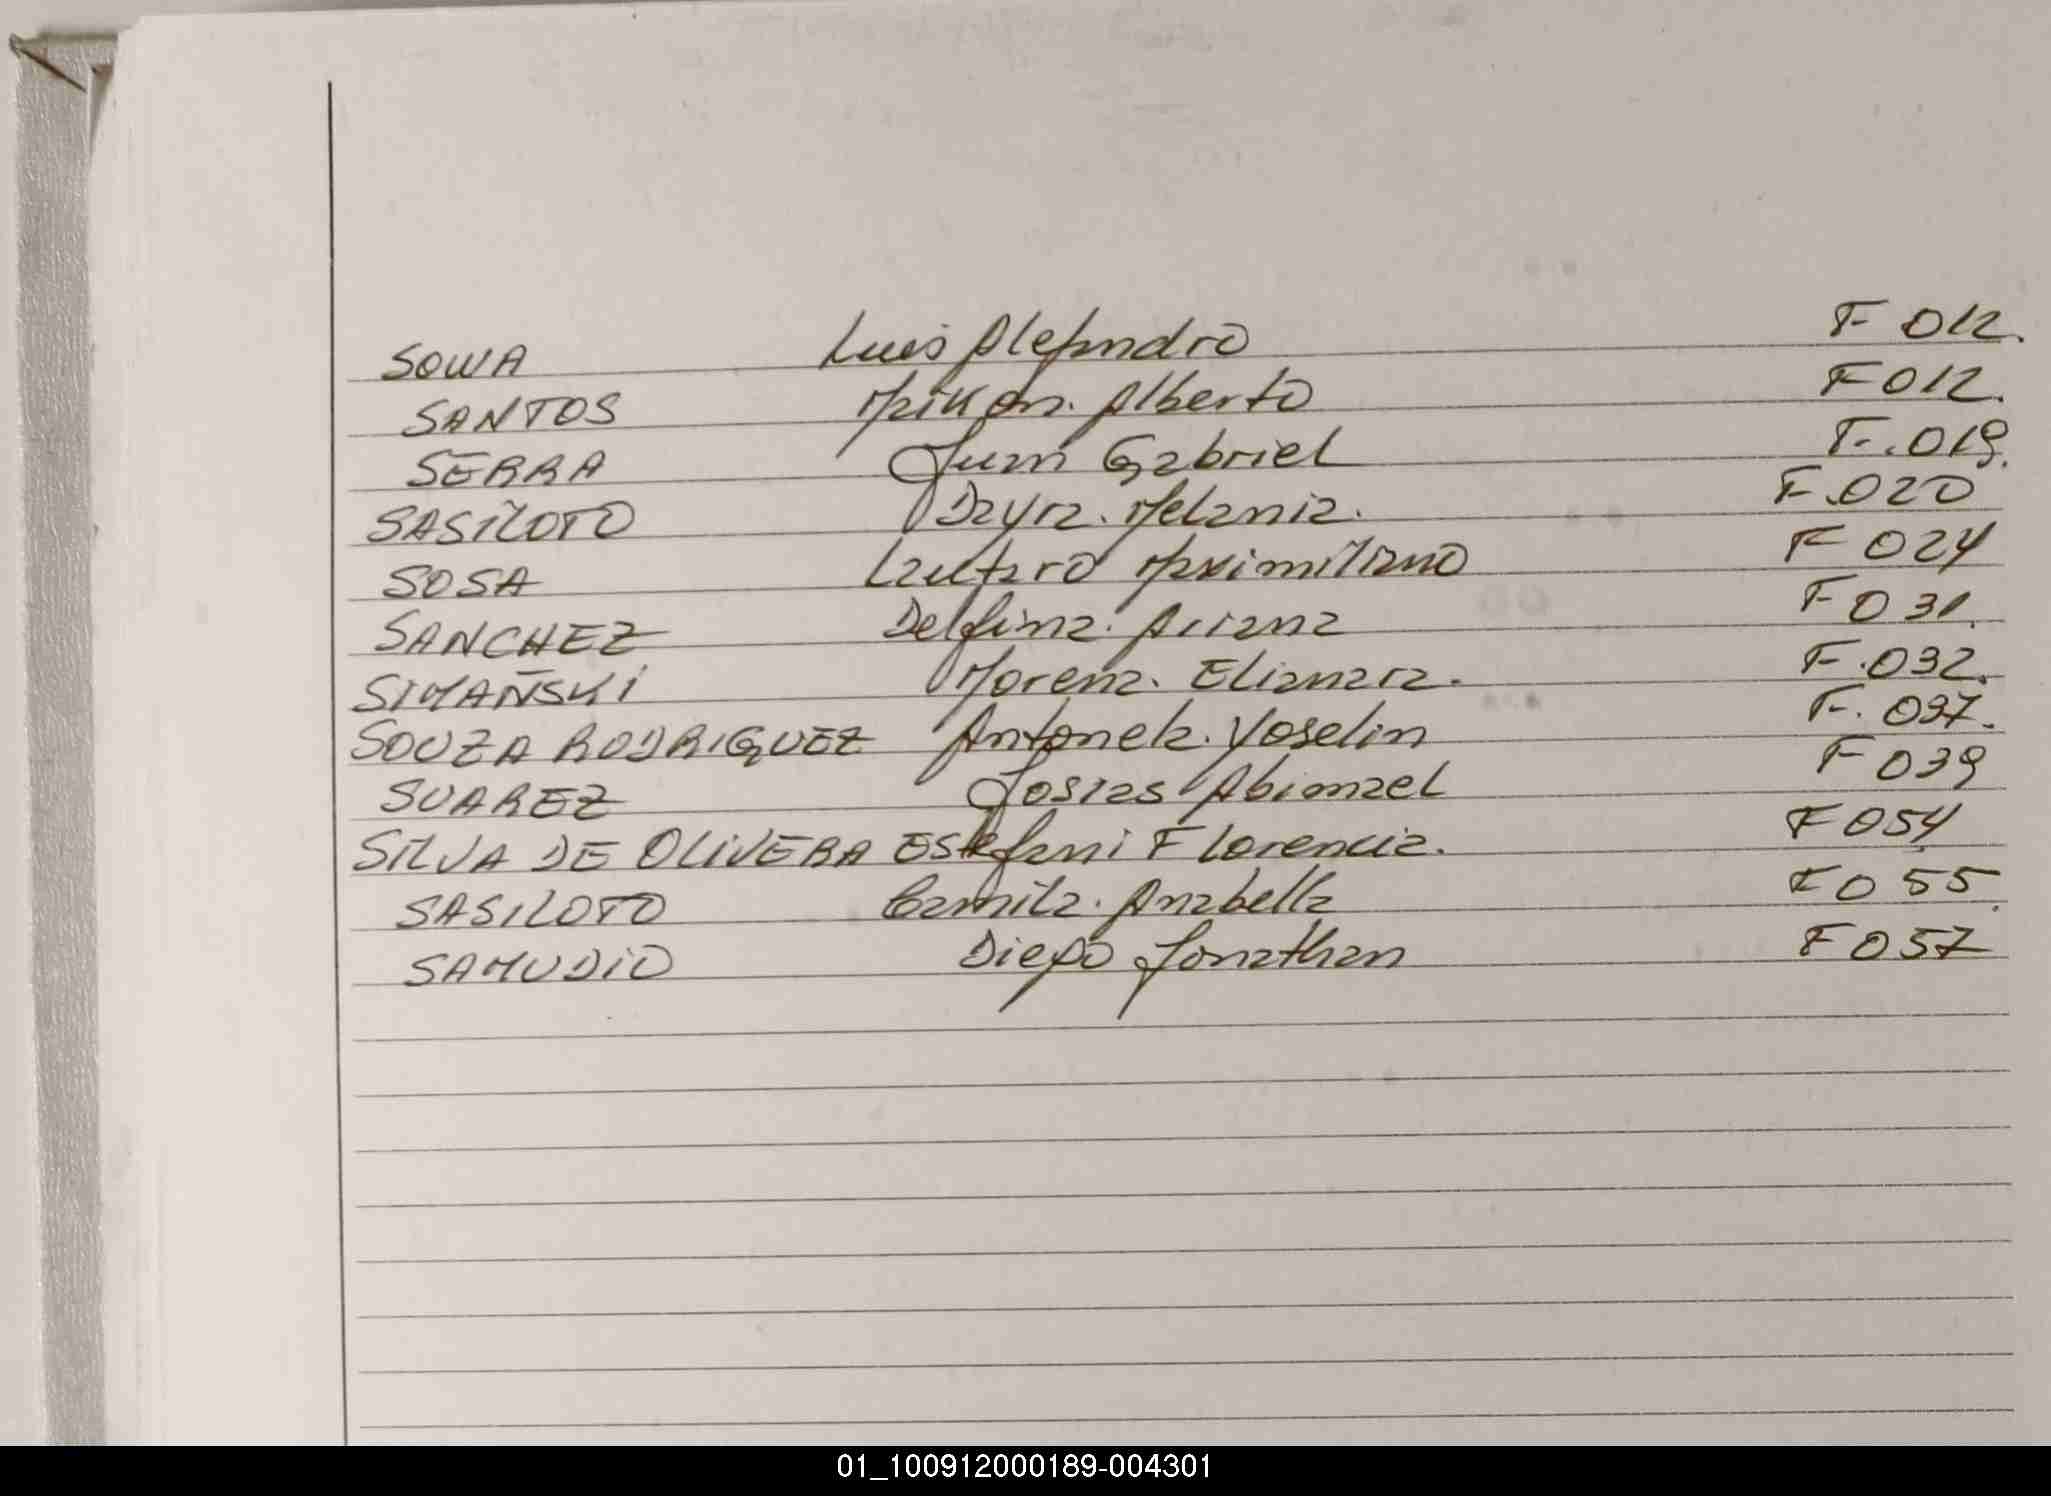 SOWA Luis Alejandro F 012.
SANTOS Maikon. Alberto F 012.
SERRA Juan Gabriel F. 019.
SASILOTO Dayra. Melania. F. 020
SOSA Lautaro Maximiliano F 024
SANCHEZ Delfina. Ariana F 031.
SIMAÑSKI Morena. Elianara. F. 032.
SOUZA RODRIGUEZ Antonela. Yoselin F. 037.
SUAREZ Josias Abimael F 039
SILVA DE OLIVERA Estefani Florencia. F 054
SASILOTO Camila. Anabella F 055.
SAMUDIO Diego Jonathan F 057
01_100912000189-004301